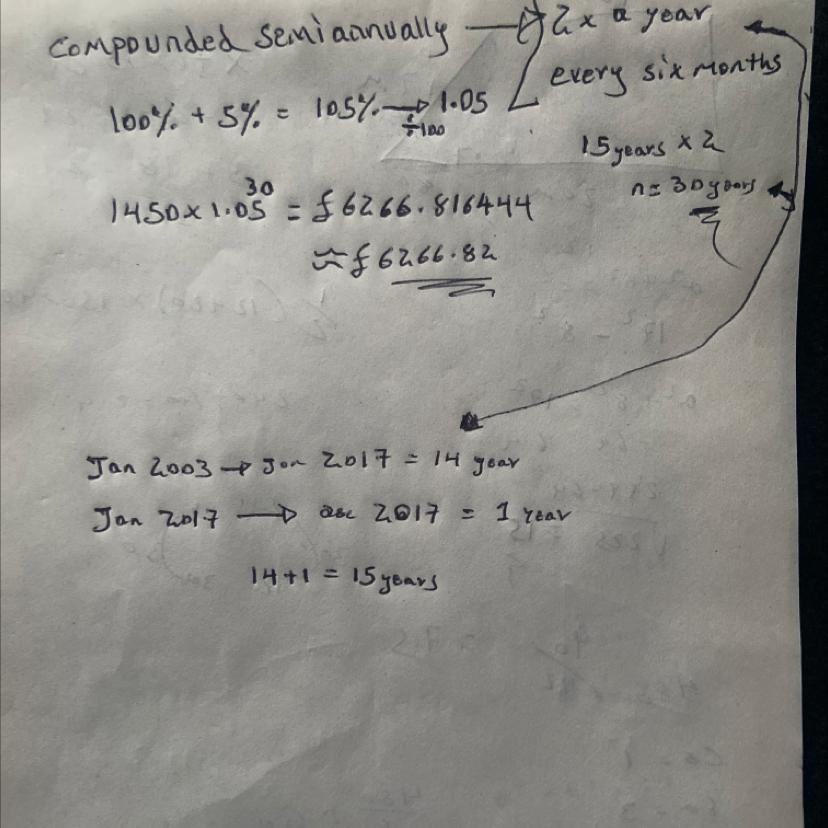 Compounded Semiaannually → 2x a year
every six months
100% + 5% = 105% → 1.05
÷100
15 years x 2
n = 30 years
1450 x 1.05³⁰ = £6266.816444
≈ £6266.82
Jan 2003 → Jan 2017 = 14 year
Jan 2017 → dec 2017 = 1 year
14 + 1 = 15 years